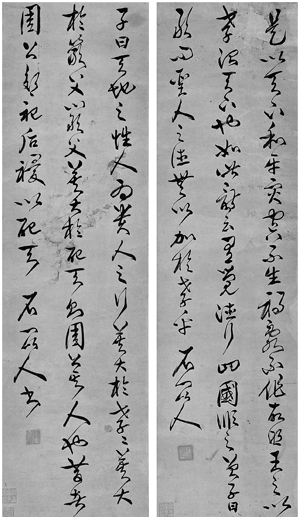 是以天下和平災害不生禍亂不作故明王之以
孝治天下也如此詩云有覺德行四國順之曾子曰
敢問聖人之德無以加於孝乎 石 人
子曰天地之性人為貴人之行莫大於孝〻莫大
於嚴父嚴父莫大於配天則周公其人也昔者
周公郊祀后稷以配天 石 人書